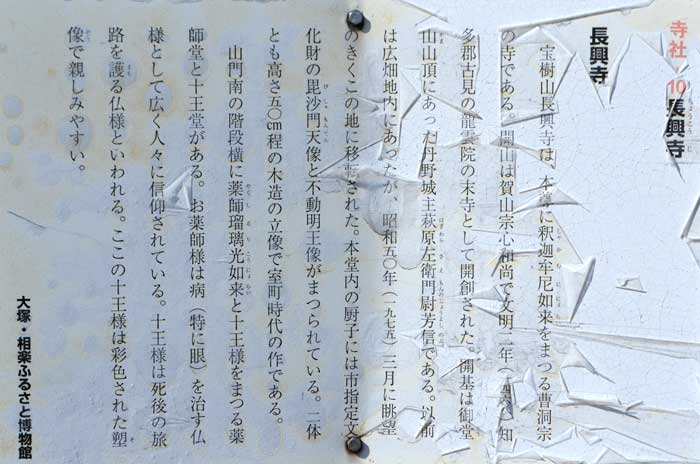 寺社・10 長興寺
長興寺
宝樹山長興寺は、本尊に釈迦牟尼如来をまつる曹洞宗
の寺である。開山は賀山宗心和尚で文明二年（一四 ）知
多郡古見の龍雲院の末寺として開創された。開基は御堂
山山頂にあった丹野城主萩原左衛門尉芳信である。以前
は広畑地内にあったが、昭和五〇年（一九七五）三月に眺望
のきくこの地に移転された。本堂内の厨子には市指定文
化財の毘沙門天像と不動明王像がまつられている。二体
とも高さ五〇cm程の木造の立像で室町時代の作である。
山門南の階段横に薬師瑠璃光如来と十王様をまつる薬
師堂と十王堂がある。お薬師様は病（特に眼）を治す仏
様として広く人々に信仰されている。十王様は死後の旅
路を護る仏様といわれる。ここの十王様は彩色された塑
像で親しみやすい。
大塚・相楽ふるさと博物館